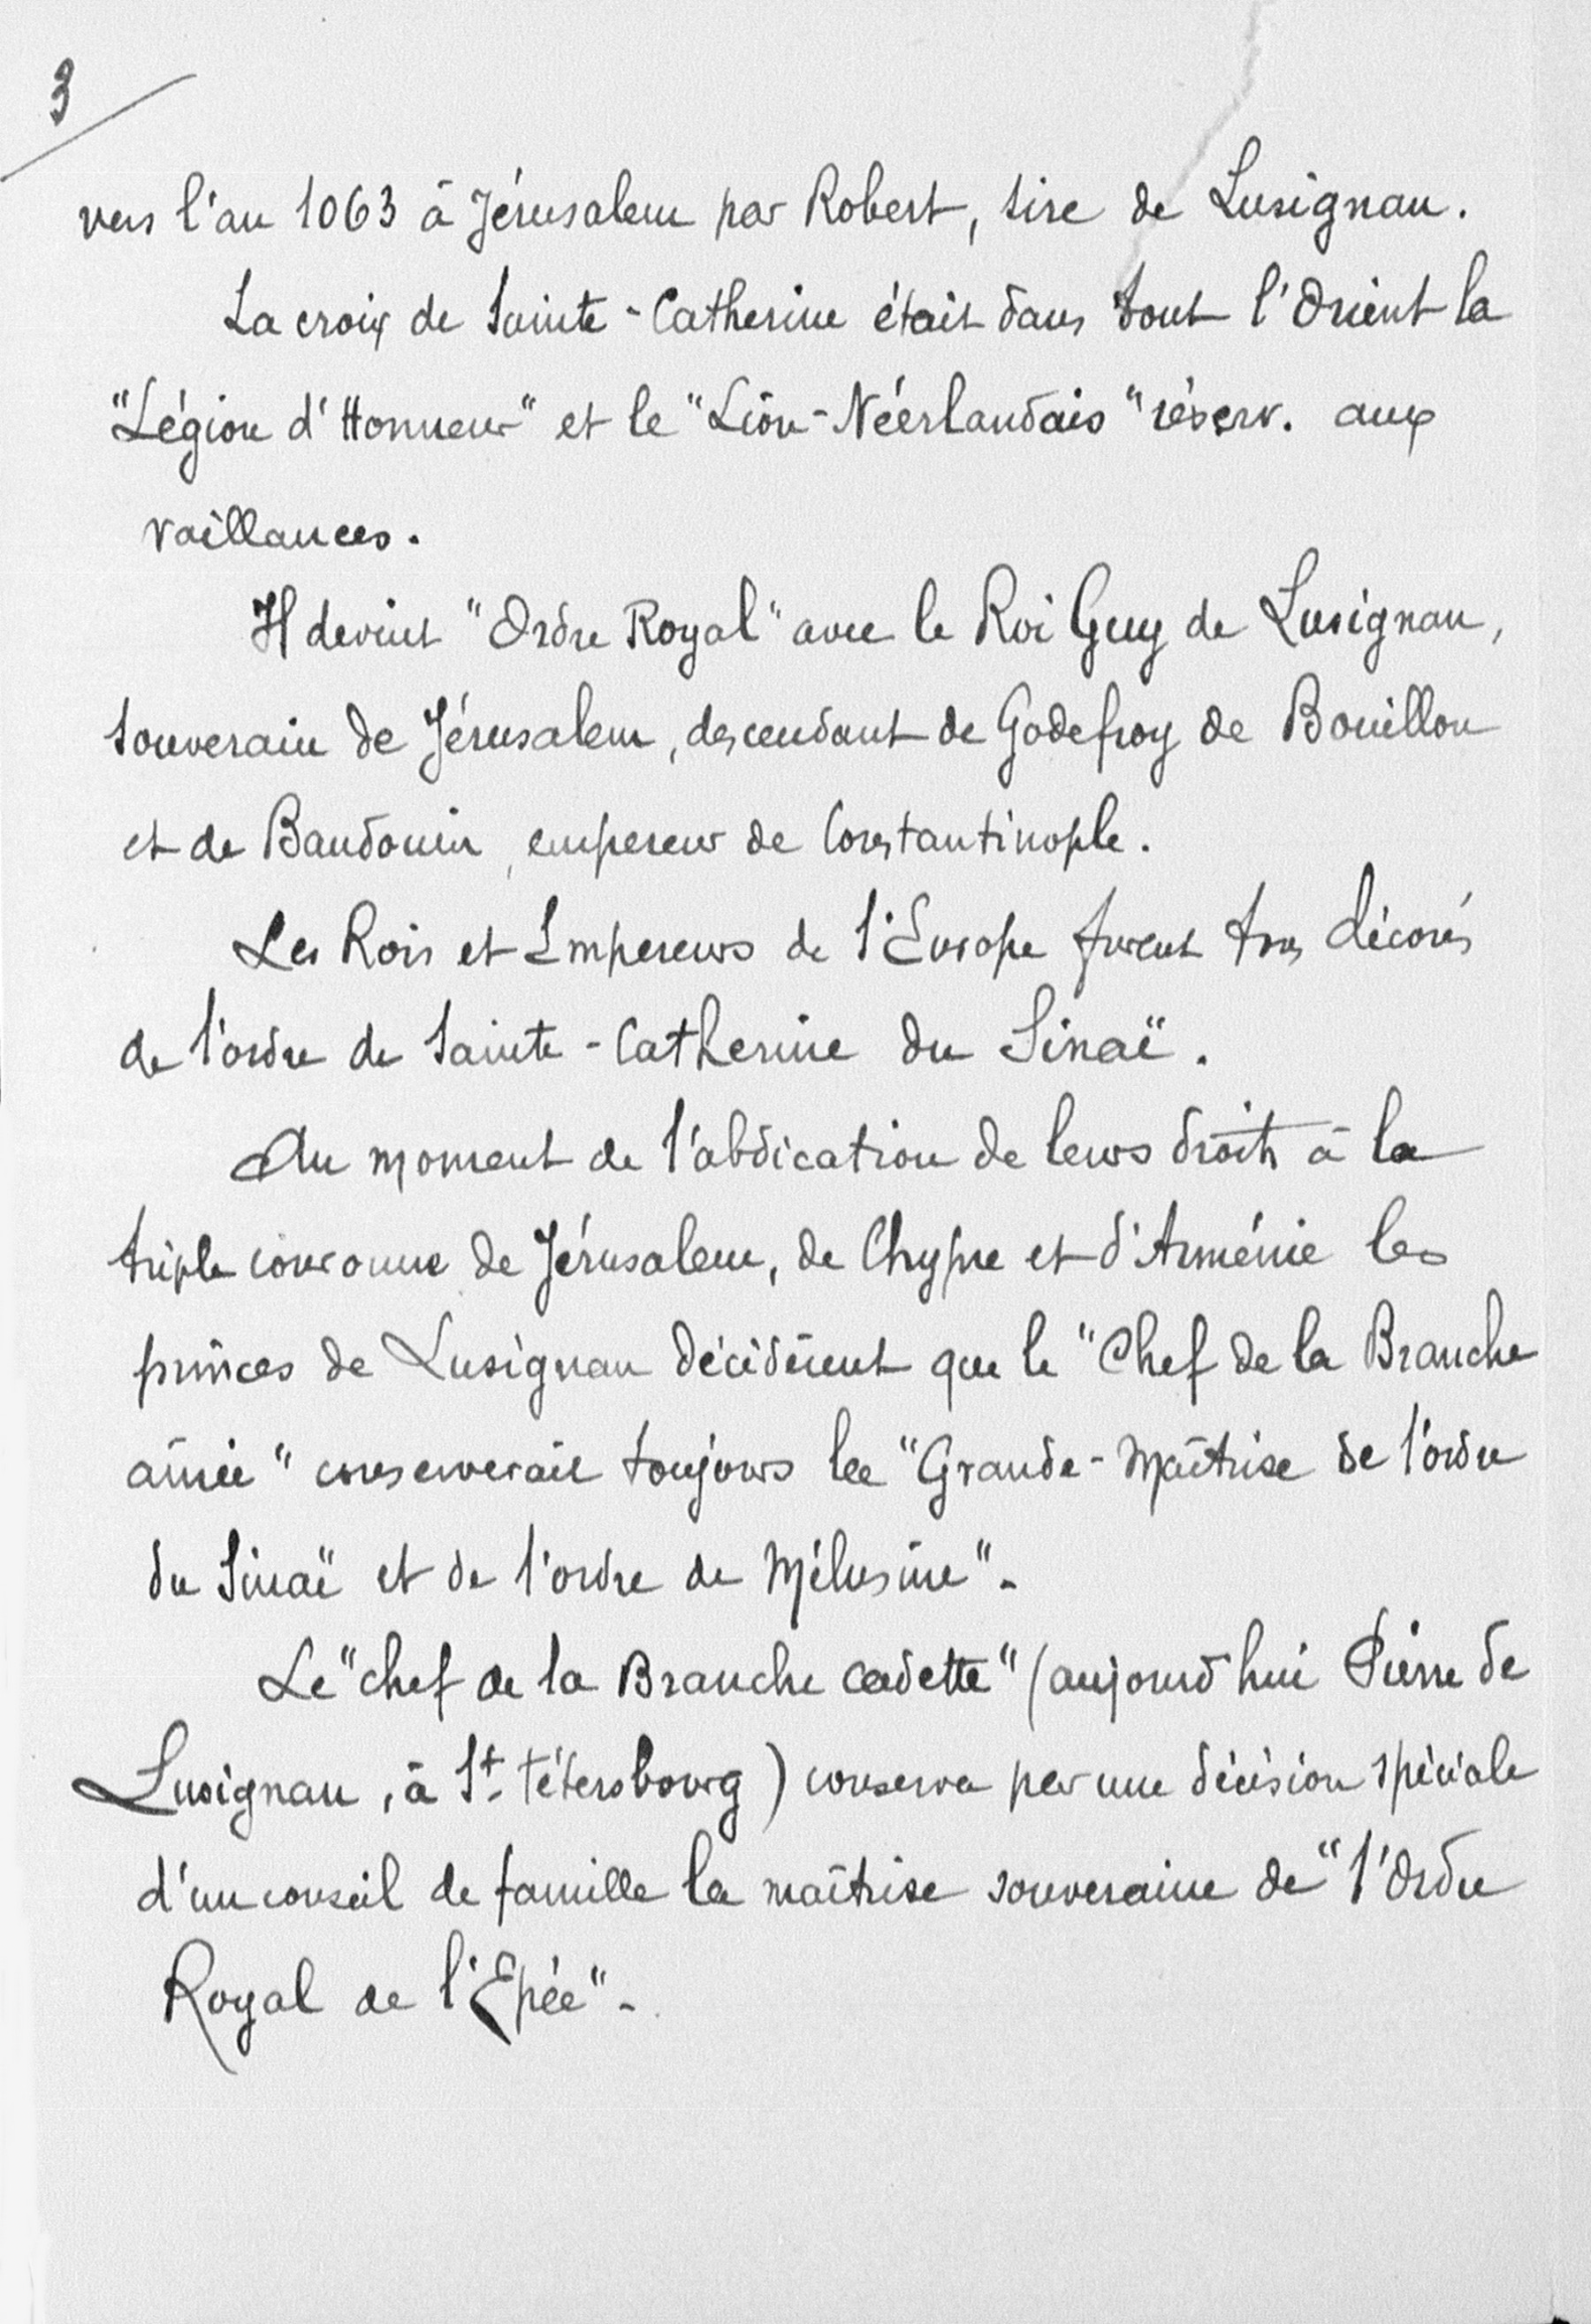 3
vers l'an 1063 à Jérusalem par Robert, sire de Lusignan.
La croix de Sainte-Catherine était dans tout l'Orient la
"Légion d'Honneur" et le "Lion-Néerlandais" réserv. aux
vaillances.
Il devint "Ordre Royal" avec le Roi Guy de Lusignan,
souverain de Jérusalem, descendant de Godefroy de Bouillon
et de Baudouin, empereur de Constantinople.
Les Rois et Empereurs de l'Europe furent tous décorés
de l'ordre de Sainte-Catherine du Sinaï.
Au moment de l'abdication de leurs droits à la
triple couronne de Jérusalem, de Chypre et d'Arménie les
princes de Lusignan décidèrent que le "Chef de la Branche
aînée" conserverait toujours la "Grande-Maîtrise de l'ordre
du Sinaï et de l'ordre de Mélusine".
Le "chef de la Branche cadette" (aujourd'hui Pierre de
Lusignan, à St. Pétersbourg) conserva par une décision spéciale
d'un conseil de famille la maîtrise souveraine de "l'Ordre
Royal de l'Epée".